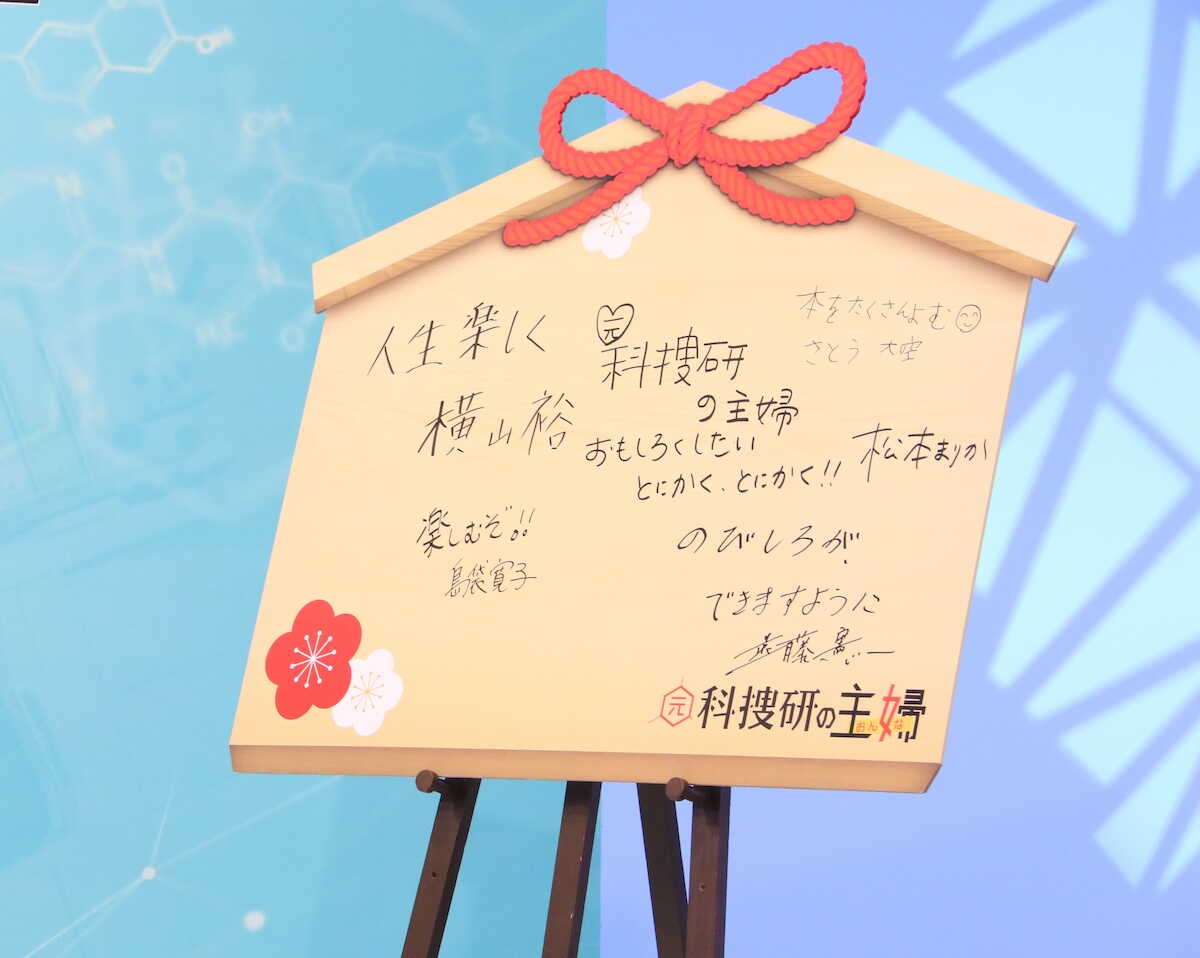 人生楽しく
横山裕
元
科捜研
の主婦
おもしろくしたい
とにかく、とにかく!!
松本まりか
本をたくさんよむ
さとう 大空
楽しむぞ!!
島袋寛子
のびしろが
できますように
遠藤憲一
元 科捜研の主婦
おんな
OH
OH
O
S
N
HN
N
HN
O